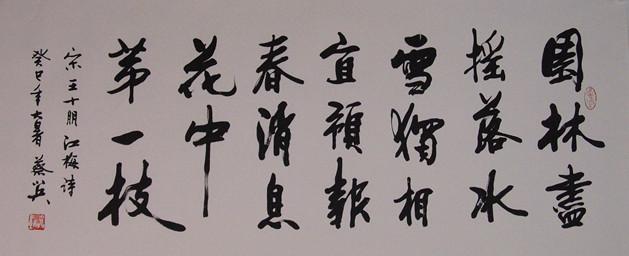 園林盡
摇落氷
雪獨相
宜預報
春消息
花中
苐一枝
宋王十朋江梅詩
癸巳年大暑蔡